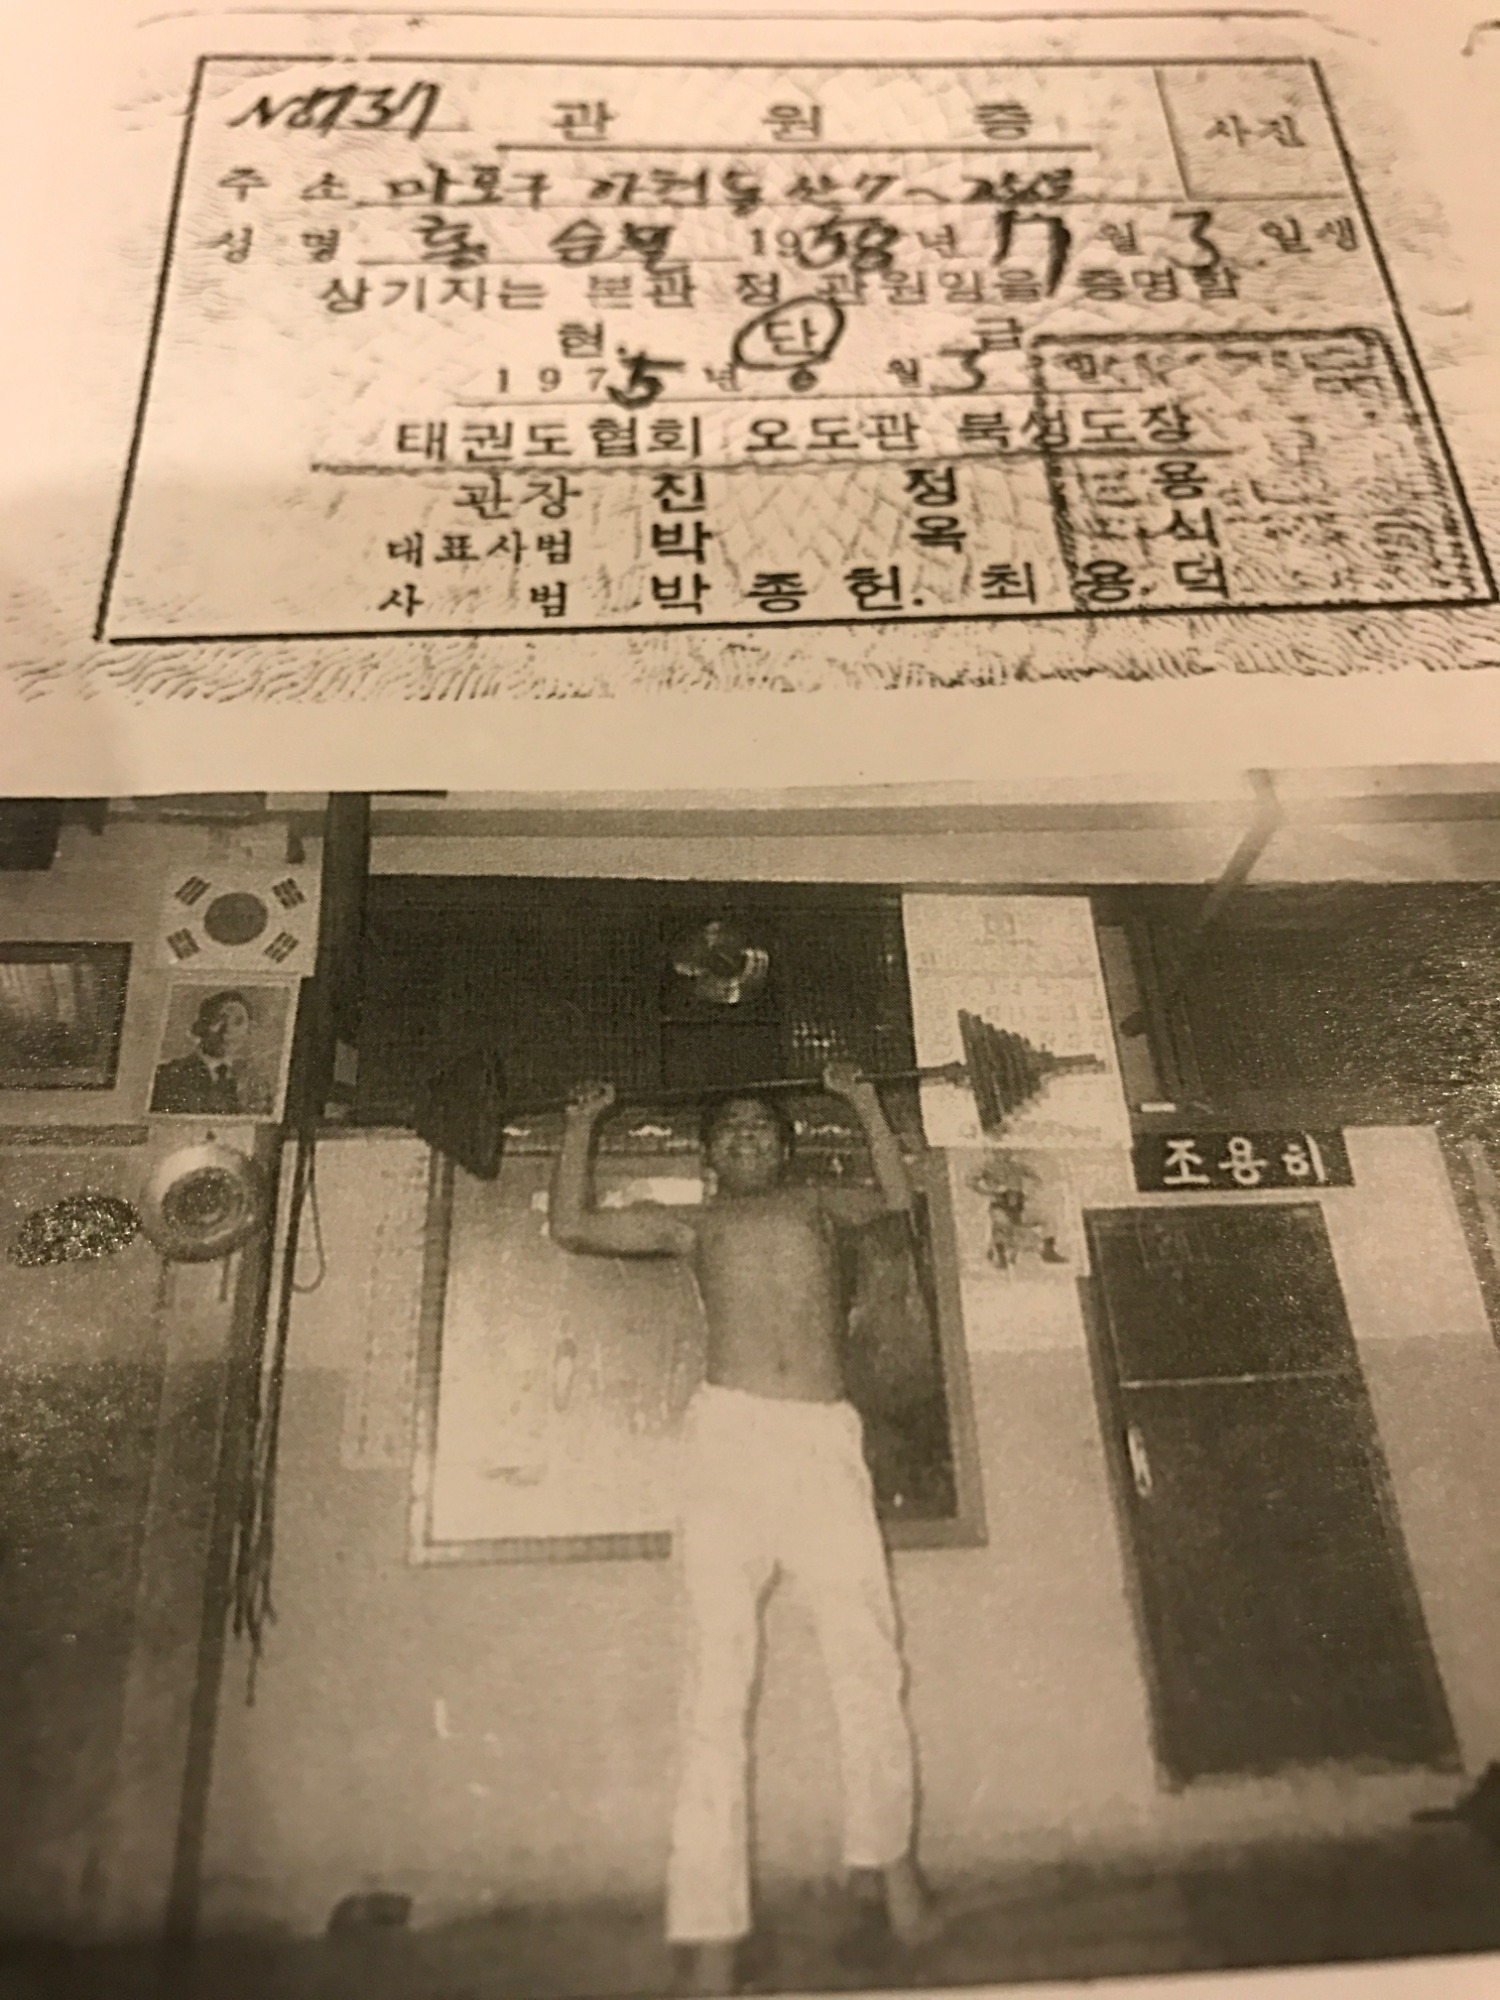 관 원 증
사진
주 소 마포구 아현동 산7
성 명 홍 승 1938년 월 3 일생
상기자는 본관 정 관원임을 증명함
현 단 급
1975년 6월 3일
태권도협회 오도관 북성도장
관장 진 정 용
대표사범 박 옥 식
사 범 박 종 헌. 최 용 덕
조용히